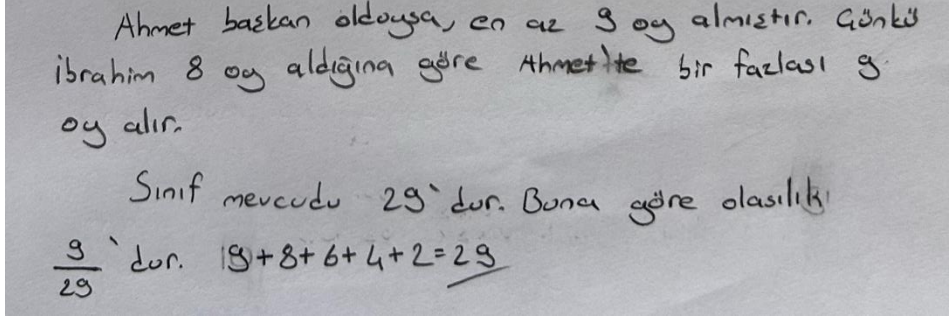 Ahmet başkan olduysa, en az 9 oy almıştır. Çünkü
İbrahim 8 oy aldığına göre Ahmet'te bir fazlası 9
oy alır.
Sınıf mevcudu 29'dur. Buna göre olasılık
9/29'dur. 9+8+6+4+2=29